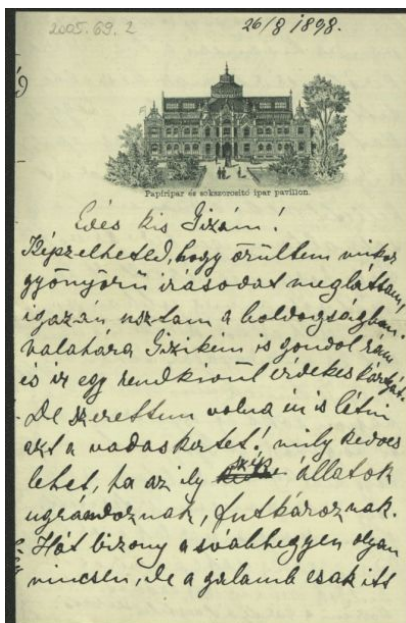 2005.69.2
26/8 1898.
Papíripar és sokszorosító ipar pavillon.
Édes kis Gizám!
Képzelheted, hogy örültem mikor
gyönyörü irásodat megláttam,
igazán usztam a boldogságban.
valahára Gizikém is gondol rám
és ir egy rendkivül érdekes kártyát.
De szerettem volna én is látni
azt a vadaskertet! mily kedves
lehet, ha az ily szép állatok
ugrándoznak, futkároznak.
Hát bizony a svábhegyen olyan
nincsen, de a galamb csak itt